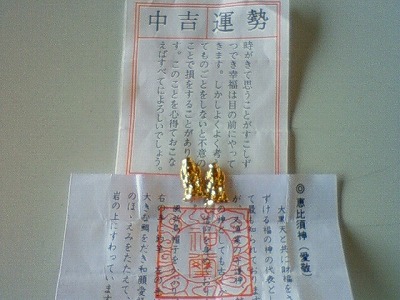 中吉運勢
時がきて思うことがすこしず
つでき幸福は目の前にやって
きます。しかしよくよく考
てものごとをしないと不意の
ことで損をすることがあり
す。このことを心得ておこな
えばすべてによろしいでしょう。
◎恵比須神(愛敬)
大黒天と共に財福を
ずける福の神の代表と
て最も知られており
神としても
右の手
大きな鯛をだき和顔愛
のほゝえみをたたえて、
岩の上にすわって、います